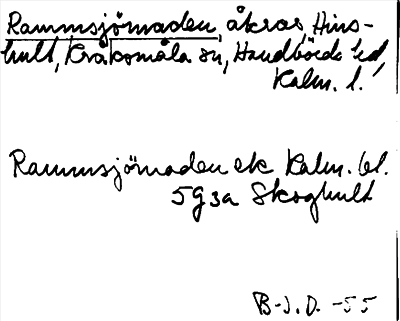 Rammsjömaden, åkrar, Hins-
hult, Kråksmåla sn, Handbörds hd,
Kalm. l.
Rammsjömaden ek Kalm. bl.
5G3a Skoghult
B-J.D. -55